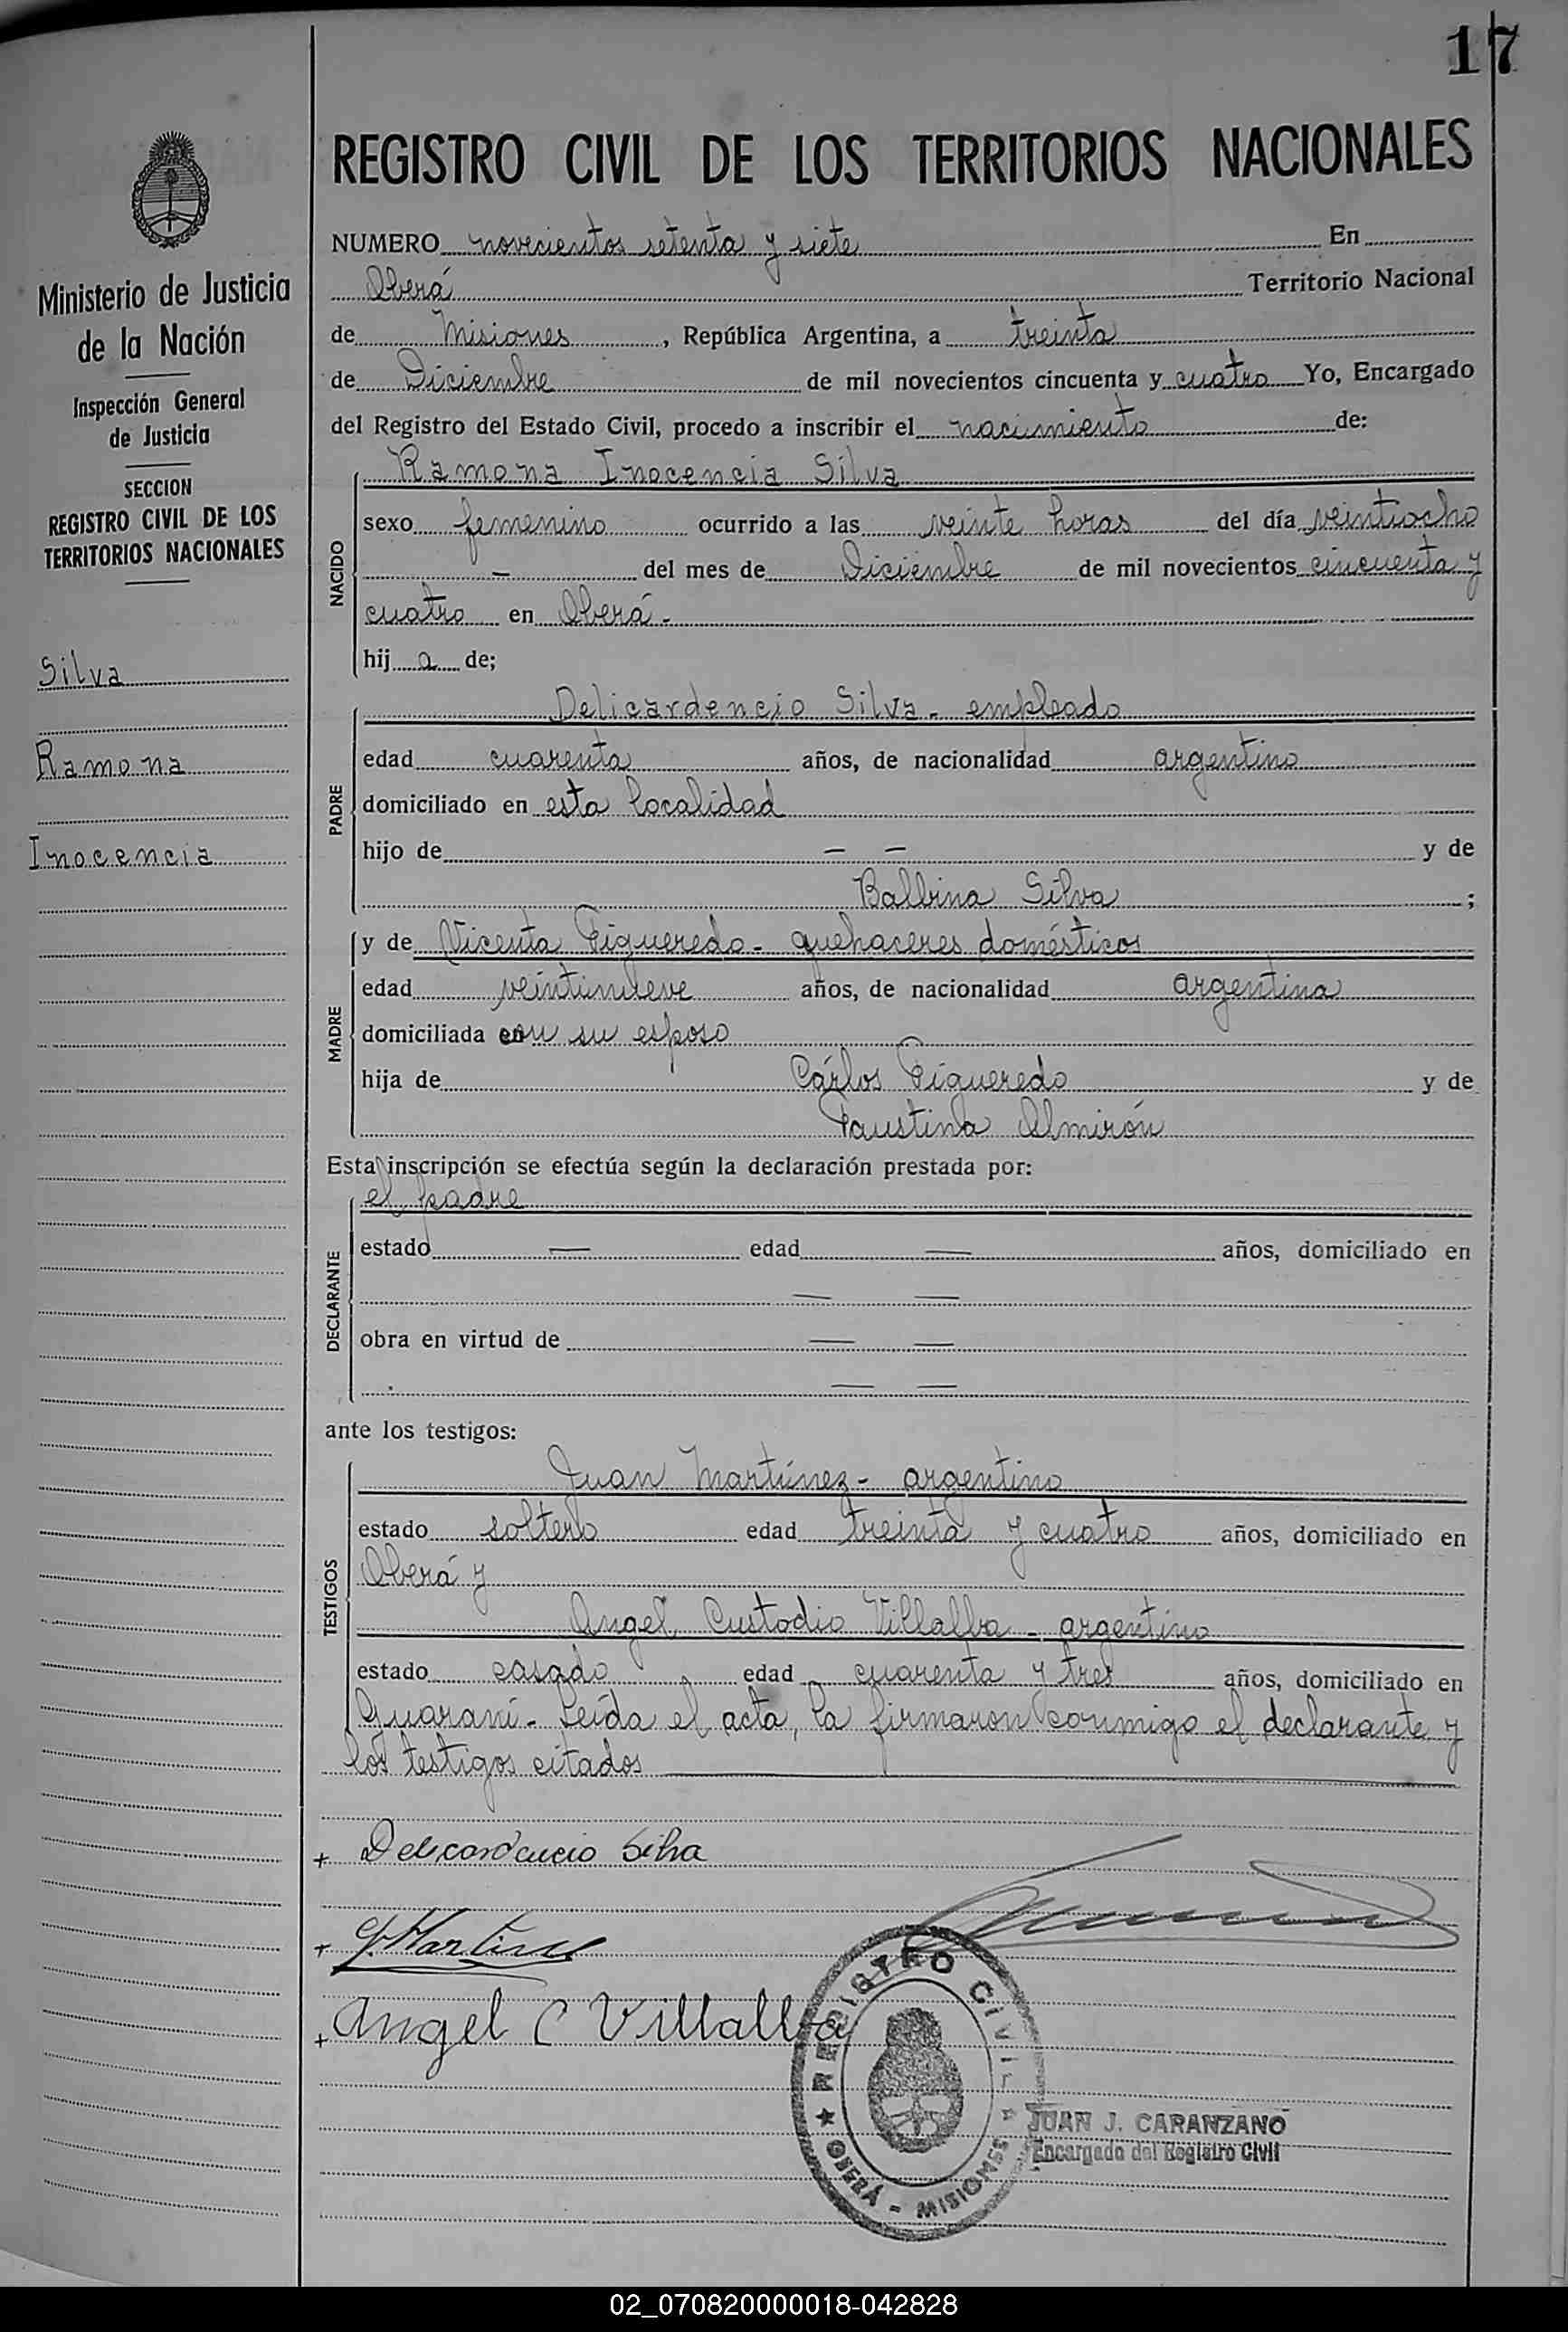 17
REGISTRO CIVIL DE LOS TERRITORIOS NACIONALES
Ministerio de Justicia
de la Nación
Inspección General
de Justicia
SECCION
REGISTRO CIVIL DE LOS
TERRITORIOS NACIONALES
Silva
Ramona
Inocencia
NUMERO novecientos setenta y siete En
Oberá Territorio Nacional
de Misiones, República Argentina, a treinta
de Diciembre de mil novecientos cincuenta y cuatro Yo, Encargado
del Registro del Estado Civil, procedo a inscribir el nacimiento de:
NACIDO
Ramona Inocencia Silva
sexo femenino ocurrido a las veinte horas del día veintiocho
— del mes de Diciembre de mil novecientos cincuenta y
cuatro en Oberá.
hij a de;
PADRE
Delicardencio Silva - empleado
edad cuarenta años, de nacionalidad argentino
domiciliado en esta localidad
hijo de — — y de
Balbina Silva ;
MADRE
y de Vicenta Figueredo - quehaceres domésticos
edad veintinueve años, de nacionalidad argentina
domiciliada con su esposo
hija de Cárlos Figueredo y de
Faustina Almirón
Esta inscripción se efectúa según la declaración prestada por:
DECLARANTE
el padre
estado — edad — años, domiciliado en
— —
obra en virtud de — —
— —
ante los testigos:
TESTIGOS
Juan Martínez - argentino
estado soltero edad treinta y cuatro años, domiciliado en
Oberá y
Angel Custodio Villalba - argentino
estado casado edad cuarenta y tres años, domiciliado en
Guaraní - Leída el acta, la firmaron conmigo el declarante y
los testigos citados
+ Delicardencio Silva
+ J. Martinez
+ Angel C Villalba
REGISTRO CIVIL
OBERÁ - MISIONES
JUAN J. CARANZANO
Encargado del Registro Civil
02_070820000018-042828